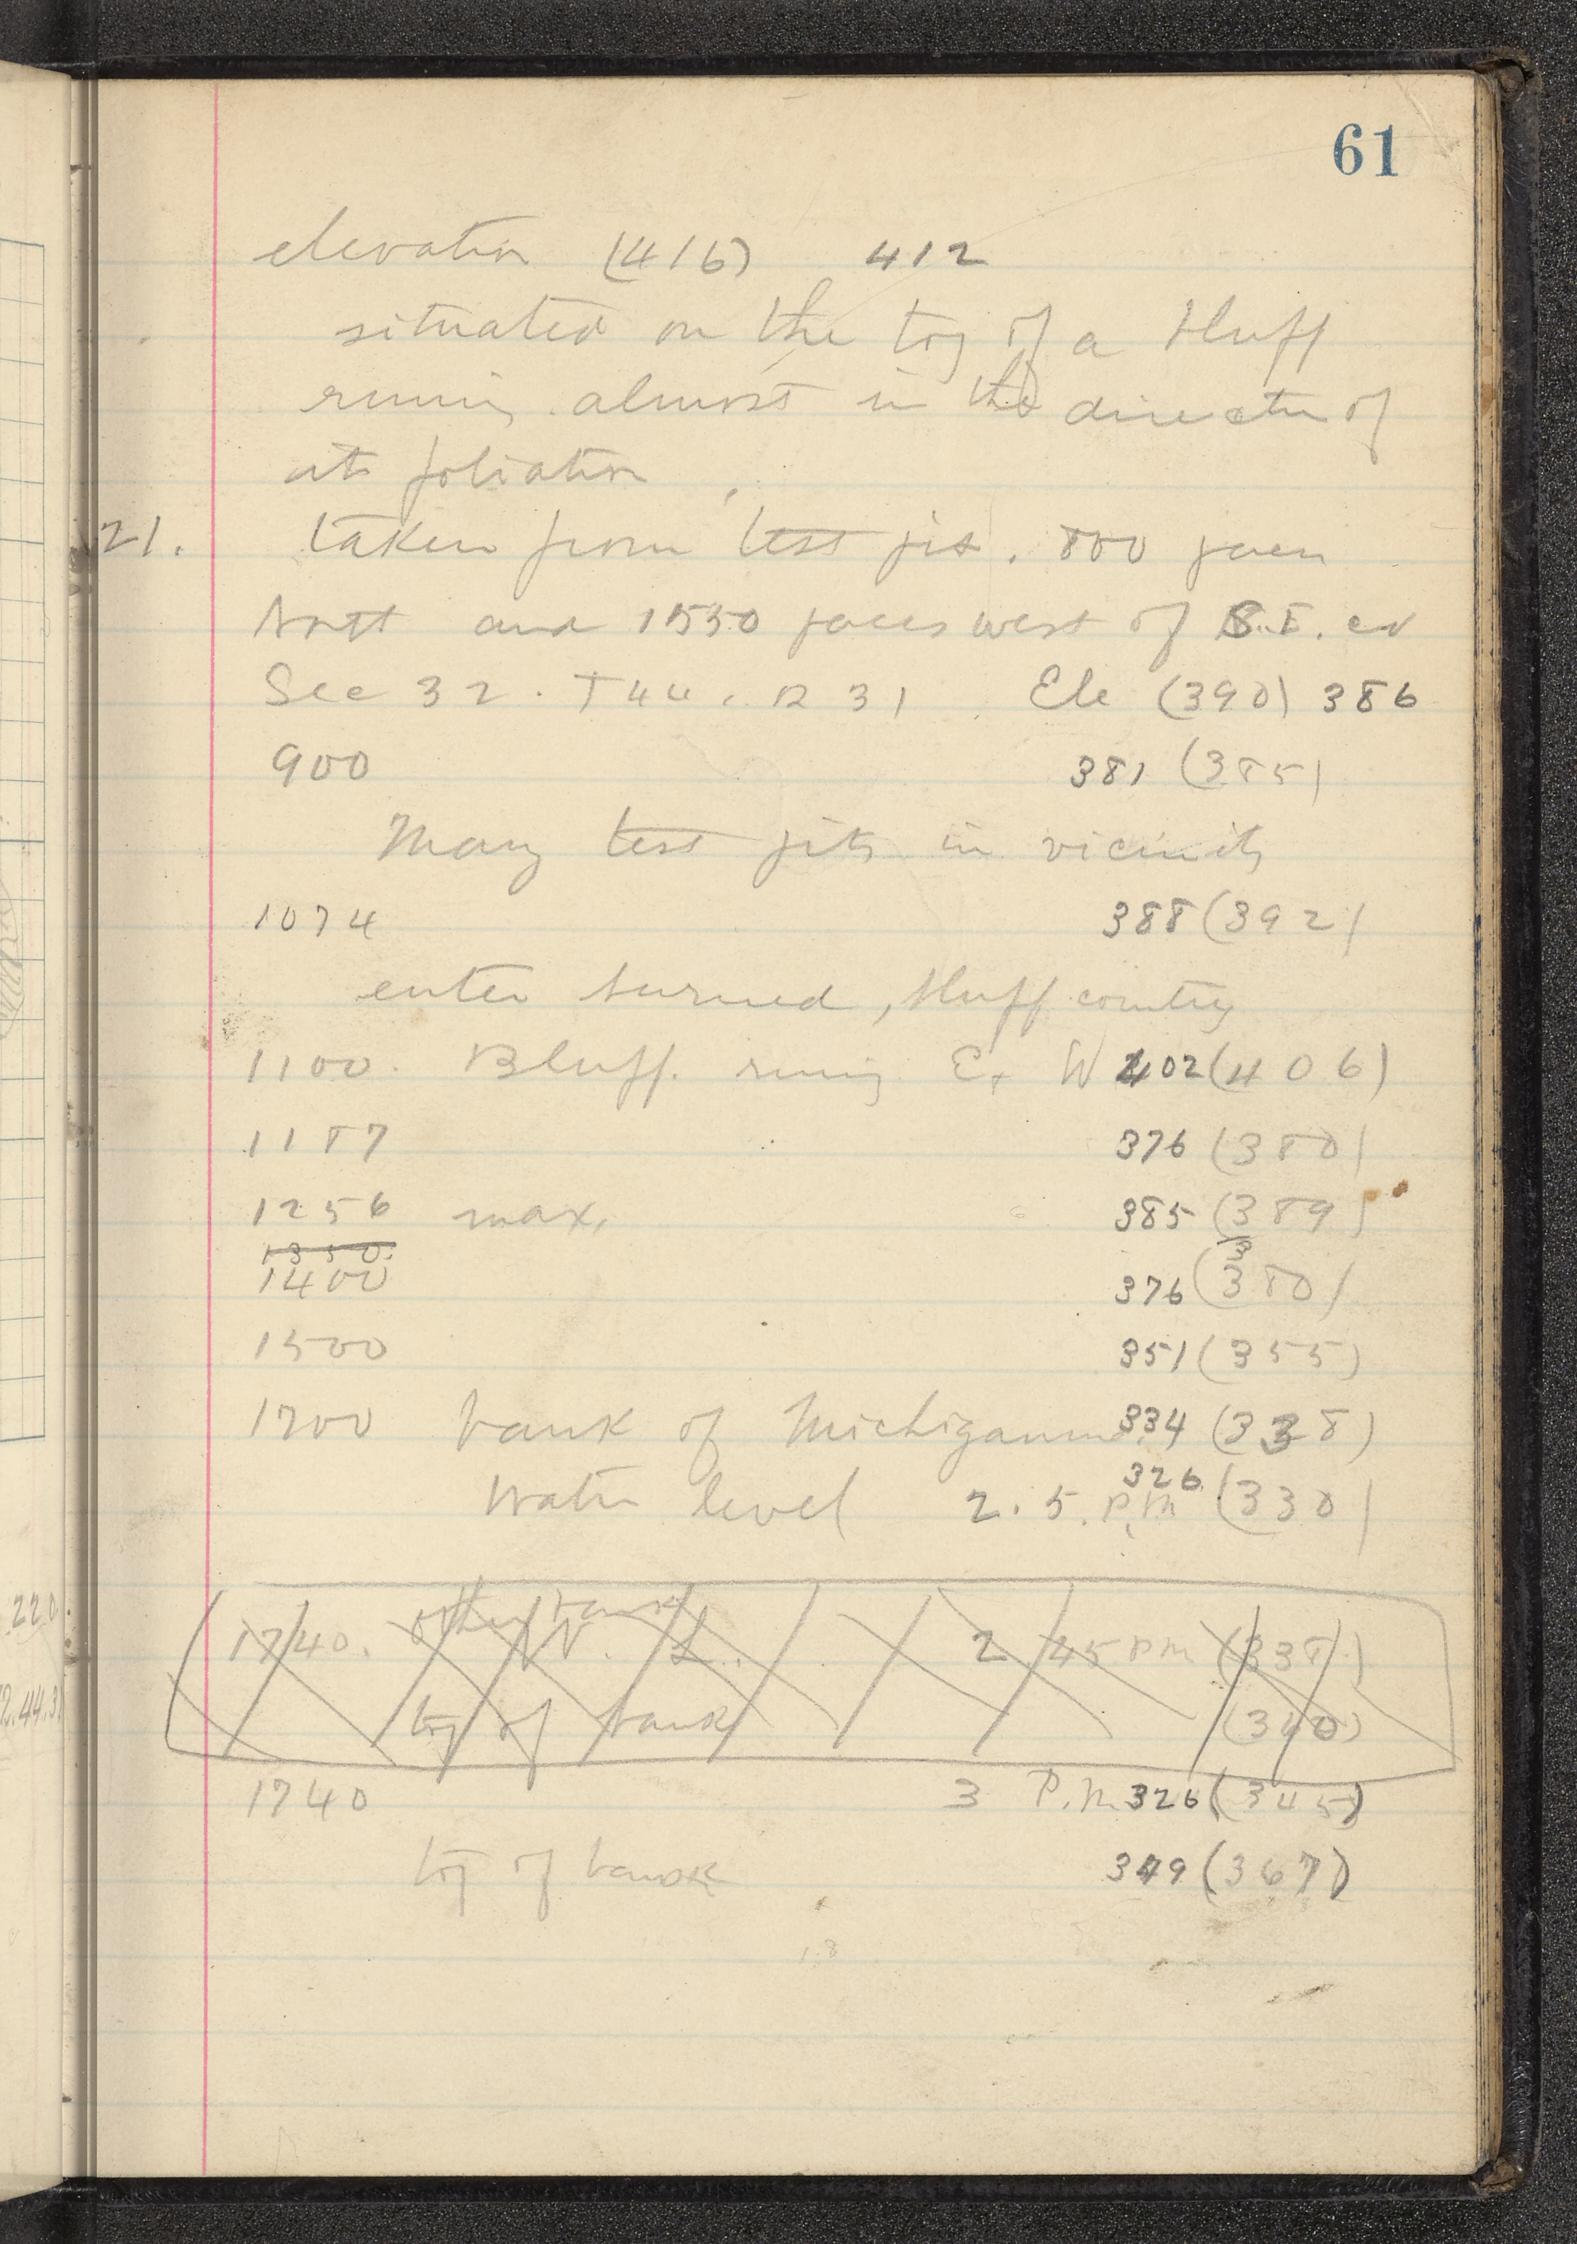 61
elevation (416) 412
situated on the top of a bluff
runing almost in the direction of
its foliation
21. taken from test pit. 800 paces
North and 1530 paces west of S.E. cor
Sec 32. T44. R 31 Ele (390) 386
900 381 (385)
Many test pits in vicinity
1074 388 (392)
enter burned, bluff country
1100. Bluff. runing E + W 402 (406)
1187 376 (380)
1256 max. 385 (389)
1350.
1400 376 (380)
1500 351 (355)
1700 bank of Michigamme. 334 (338)
326
Water level 2.5. P.M (330)
other bank
1740. W. L. 2 45 PM (338)
top of bank (340)
1740 3 P.M. 326 (345)
top of bank 349 (367)
220
2.44.31